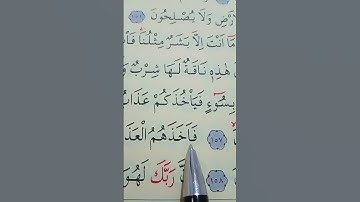 رْضِ وَلَا يُصْلِحُونَ ١٥٢
مَا اَنْتَ اِلَّا بَشَرٌ مِثْلُنَا فَأْ
هٰذِهِ نَاقَةٌ لَهَا شِرْبٌ وَ
بِسُوءٍ فَيَأْخُذَكُمْ عَذَابُ
١٥٧ فَاَخَذَهُمُ الْعَذَ
نَّ رَبَّكَ لَهُوَ ١٥٨